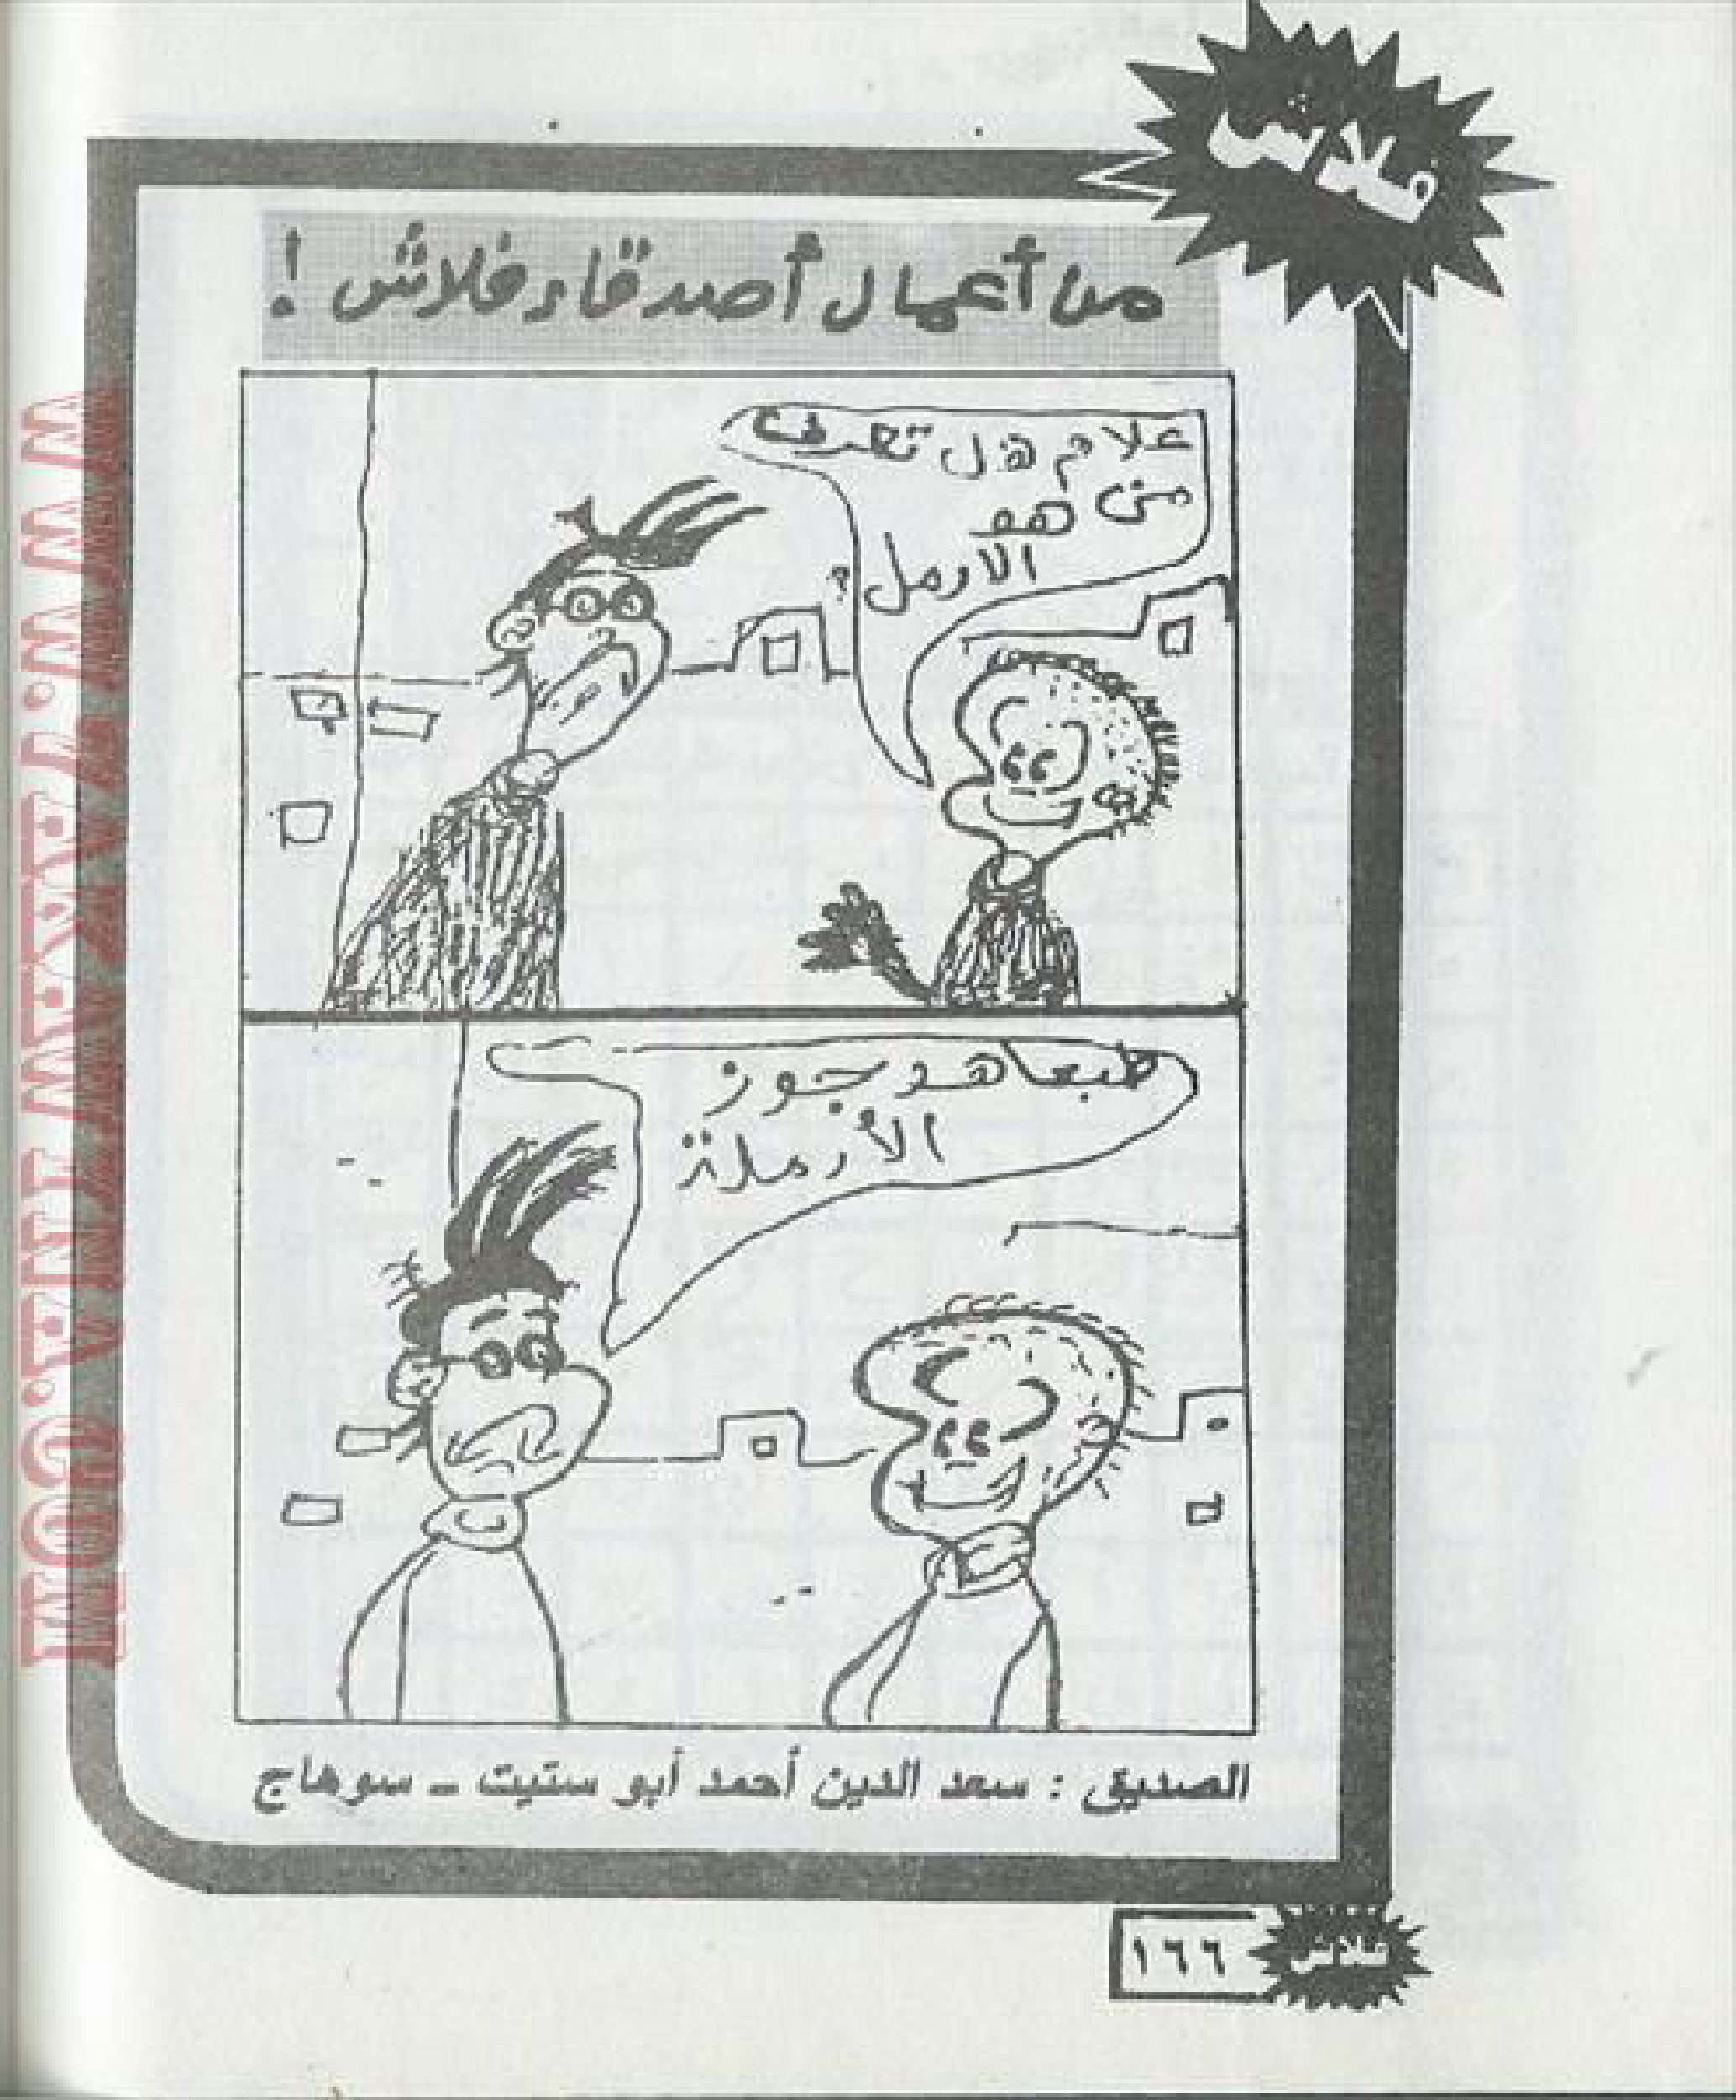 فلاش
من أعمال أصدقاء فلاش !
علام هل تعرف
من هو
الارمل؟
طبعا هو جوز
الأرملة
الصديق : سعد الدين أحمد أبو ستيت ـ سوهاج
١٦٦ فلاش